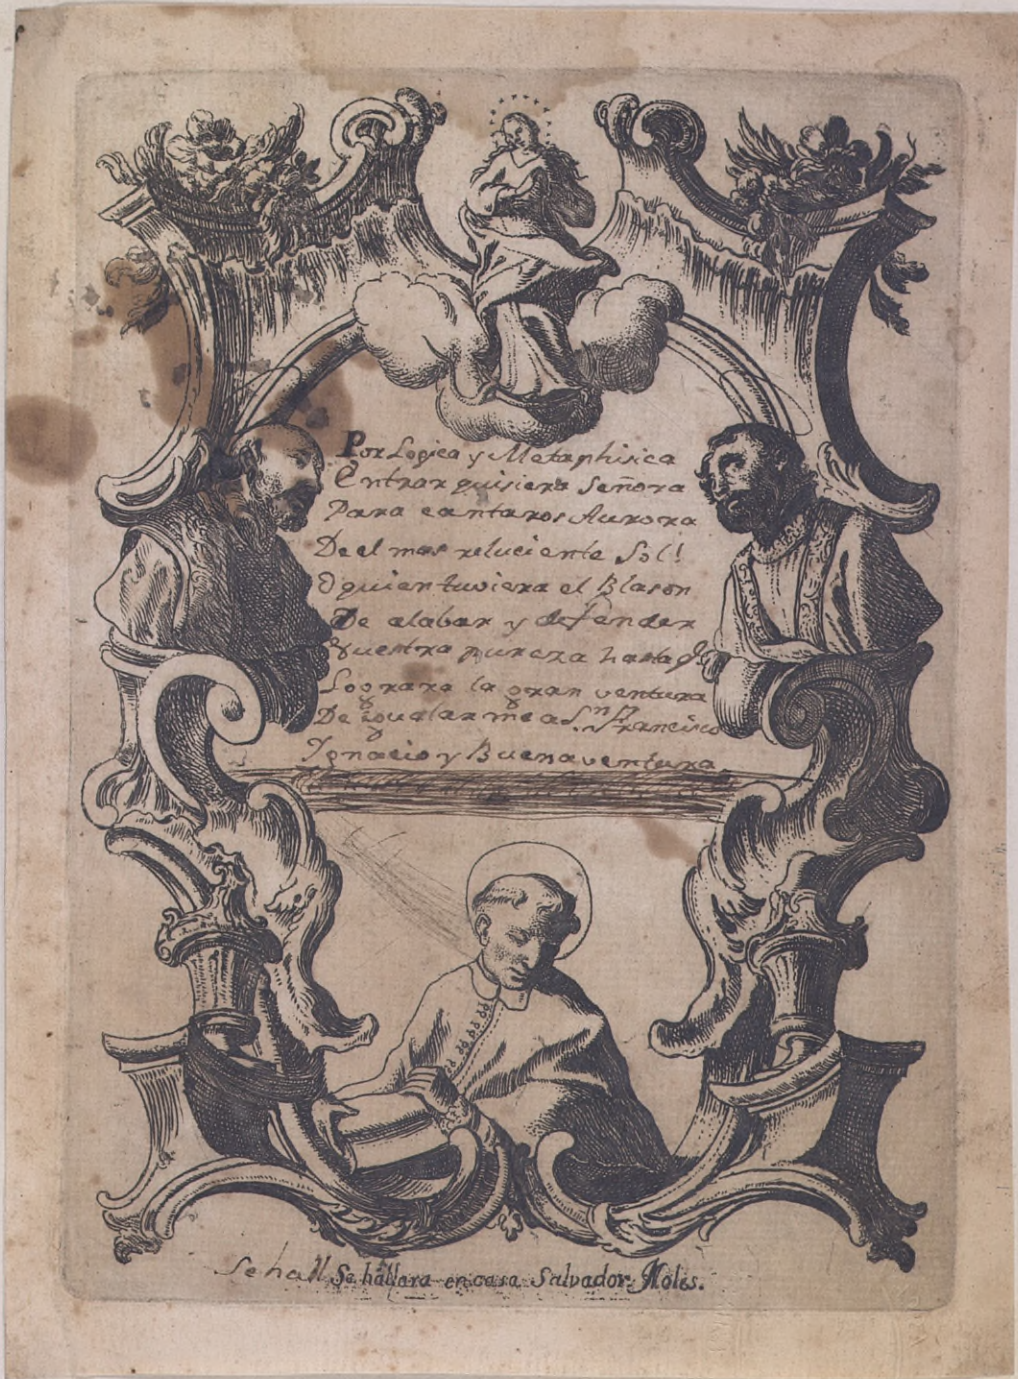 Por Logica y Metaphisica
Entrar quisiera Señora
Para cantaros Aurora
De el mas reluciente Sol!
O quien tuviera el Blason
De alabar y defender
Vuestra pureza hasta q.
Lograra la gran ventura
De igualarme a Sn. Francisco
Ignacio y Buenaventura
Se hall Se hallara en casa Salvador Noles.